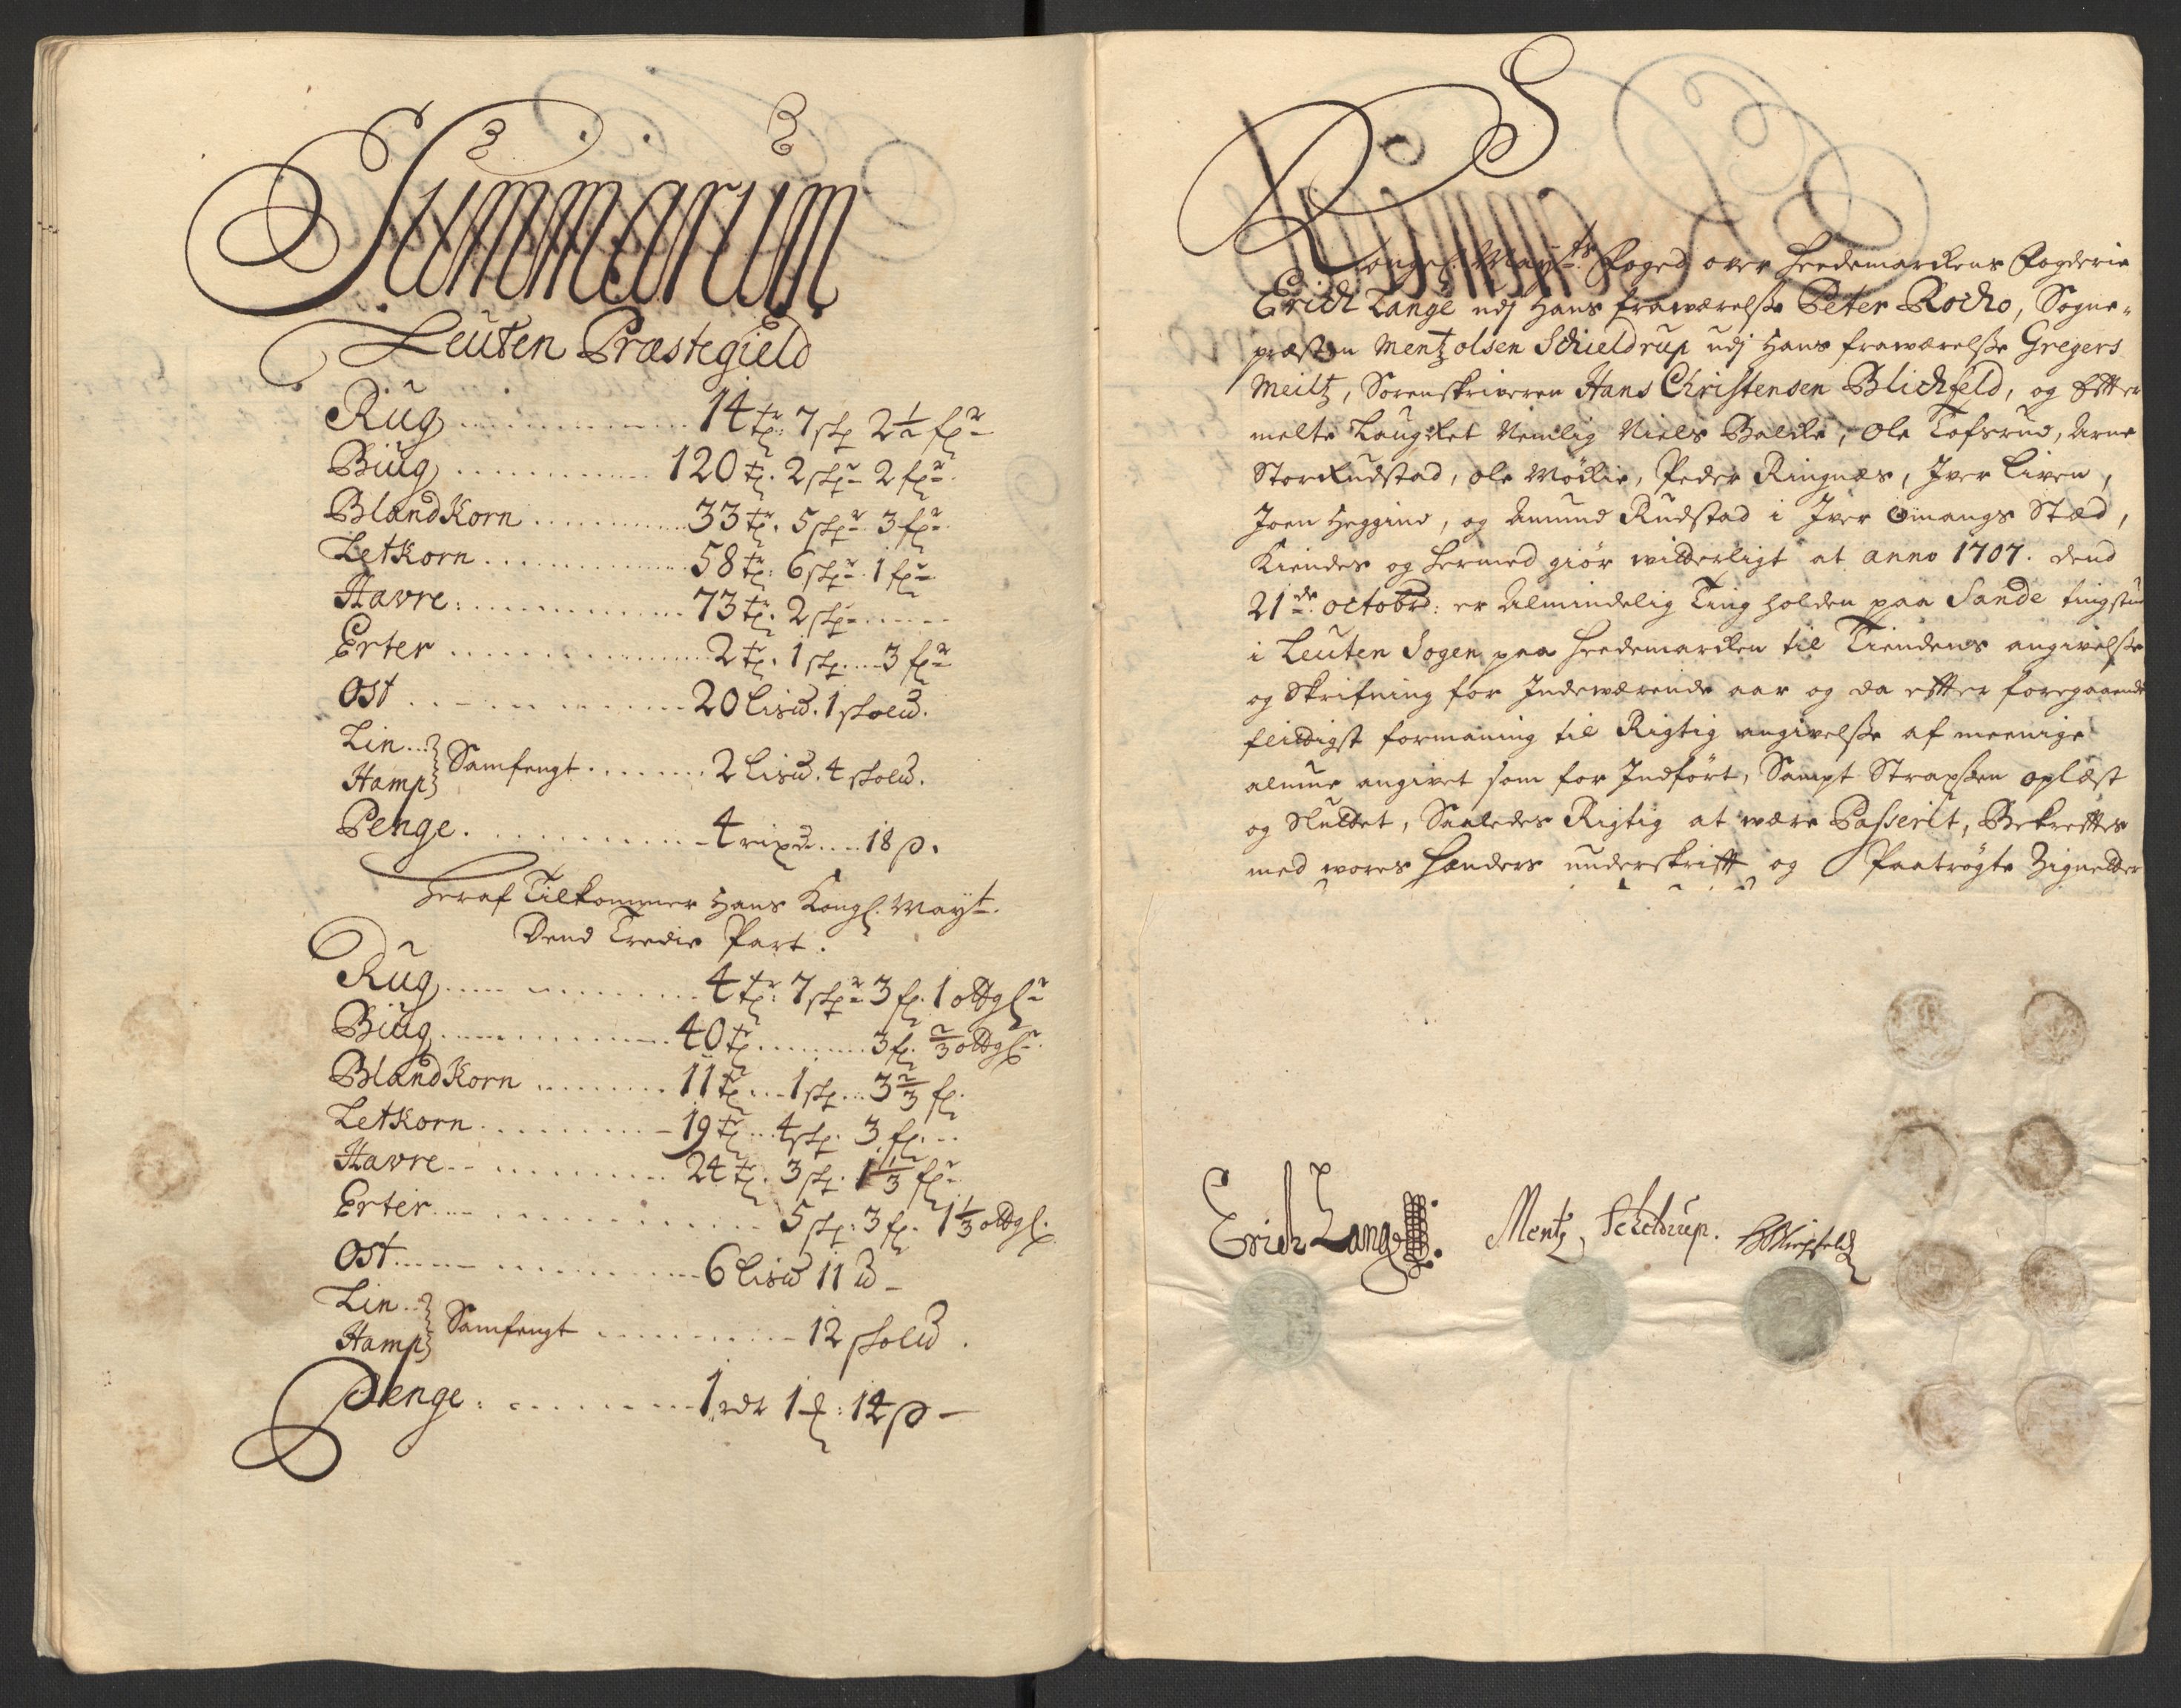 Summarum
Leuten Præstegield
Rug 14 tr: 7 skp 2½ fr
Biug 120 tr. 2 skpr 2 fr
Blandkorn 33 tr. 5 skpr 3 fr
Letkorn 58 tr: 6 skpr 1 fr
Havre: 73 tr. 2 skpr
Erter 2 tr. 1 skp 3 fr
Ost 20 Lis℔. 1 skol℔.
Lin
Samfengt 2 Lis℔. 4 skol℔.
Hamp
Penge. 4 rixdr 18 β.
Heraf Tilkommer Hans Kongl. Mayt.
Dend Tredie Part.
Rug 4 tr: 7 skpr 3 f. 1 ottgr
Biug 40 tr 3 f. ⅔ ottgr.
Blandkorn 11 tr 1 skp 3⅔ f.
Letkorn 19 tr 4 skp. 3 f.
Havre 24 tr. 3 skp. 1⅓ fr
Erter 5 skp: 3 f. 1⅓ ottg.
Ost 6 Lis℔ 11 ℔
Lin
Samfengt 12 skol℔.
Hamp
Penge: 1 rdr 1 : 14 β
Kongel: Mayts Foged over Hedemarckens Fogderie
Erich Lange udj Hans fraværelsse Peter Rocho, Sogne-
præsten Mentz olsen Schieldrup udj Hans fraværelsse Gregers
Meiltz, Sorenskriveren Hans Christensen Blichfeld, og Efter
melte Laugret Nemlig Niels Balche, Ole Tofsrud, Arne
StorRudstad, Ole Möclie, Peder Ringnæs, Jver Liven,
Joen Heggind, og Amund Rudstad i Jver Omangs Stæd,
Kiendes og Hermed giör witterligt at anno 1707. dend
21de octobr: er Almindelig Ting holden paa Sande tingstue
i Leuten Sogen paa Hedemarcken til Tiendens angivelsse
og Skrifning for Indeværende aar og da efter foregaaende
flittigst formaning til Rigtig angivelsse af meenige
almue angivet som for Indfört, Sampt Straxsen oplæst
og Sluttet, Saaledes Rigtig at være Passerit, Bekreftes
med wores Hænders underskrift og Paatrögte Zignetter
Erich Lange. Mentz Scheldrup. HBlichfeld